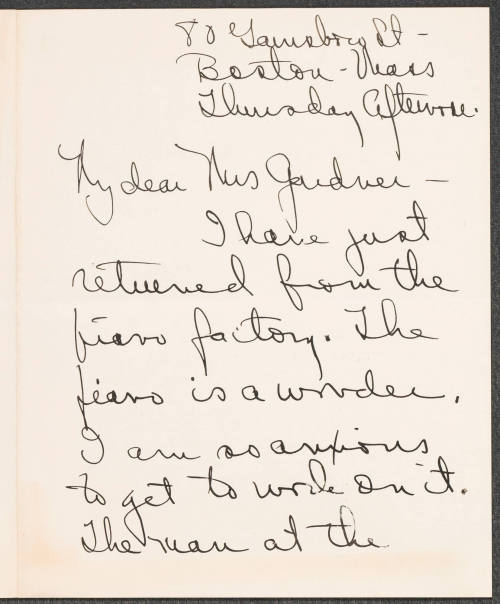 80 Gainsboro St -
Boston - Mass
Thursday Afternoon.
My dear Mrs Gardner -
I have just
returned from the
piano factory. The
piano is a wonder.
I am so anxious
to get to work on it.
The man at the